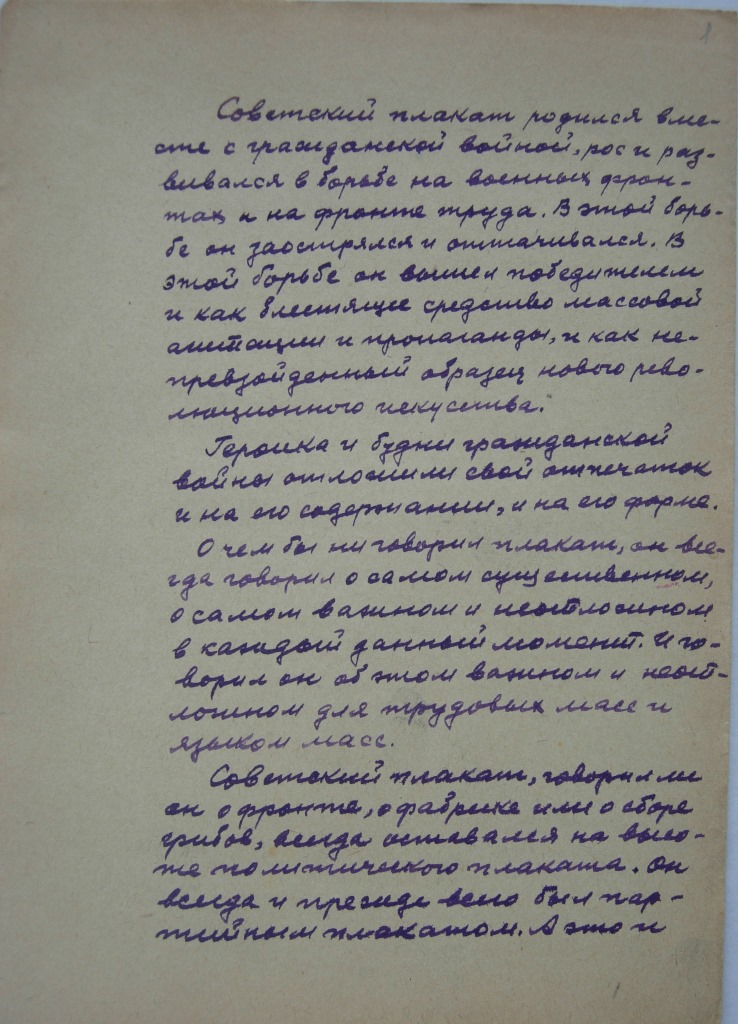 1
Советский плакат родился вме-
сте с гражданской войной, рос и раз-
вивался в борьбе на военных фрон-
тах и на фронте труда. В этой борь-
бе он заострялся и оттачивался. В
этой борьбе он вышел победителем
и как блестящее средство массовой
агитации и пропаганды, и как не-
превзойденный образец нового рево-
люционного искусства.
Героика и будни гражданской
войны отложили свой отпечаток
и на его содержании, и на его форме.
О чем бы ни говорил плакат, он все-
гда говорил о самом существенном,
о самом важном и неотложном
в каждый данный момент. И го-
ворил он об этом важном и неот-
ложном для трудовых масс и
языком масс.
Советский плакат, говорил ли
он о фронте, о фабрике или о сборе
грибов, всегда оставался на высо-
те политического плаката. Он
всегда и прежде всего был пар-
тийным плакатом. А это и